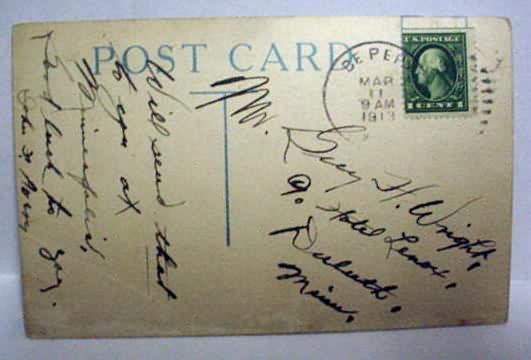 POST CARD
U.S. POSTAGE
1 CENT 1
DE PERE
MAR
11
9 AM
1913
Will send that
to you at
Minneapolis,
Good luck to you.
John
Mr.
Guy H. Wright,
Hotel Lenox,
Duluth,
Minn.